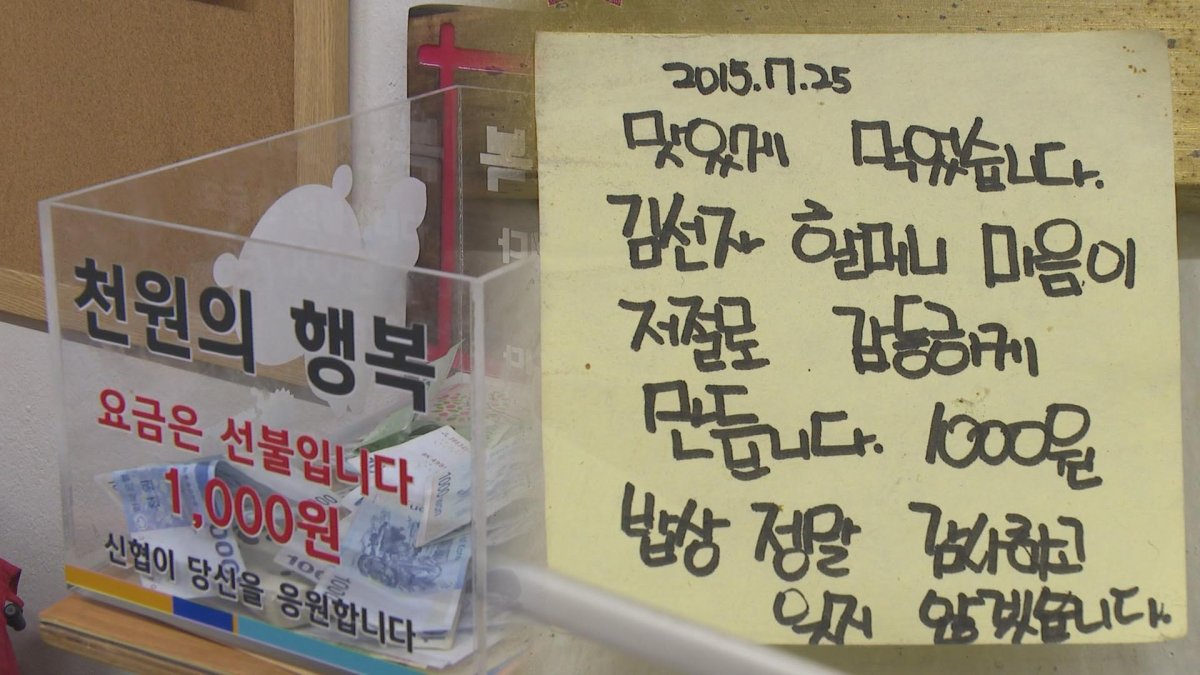 천원의 행복
요금은 선불입니다
1,000원
신협이 당신을 응원합니다
2015.17.25
맛있게 먹었습니다.
김선자 할머니 마음이
저절로 감동하게
만듭니다. 1000원
밥상 정말 감사하고
잊지 않겠습니다.